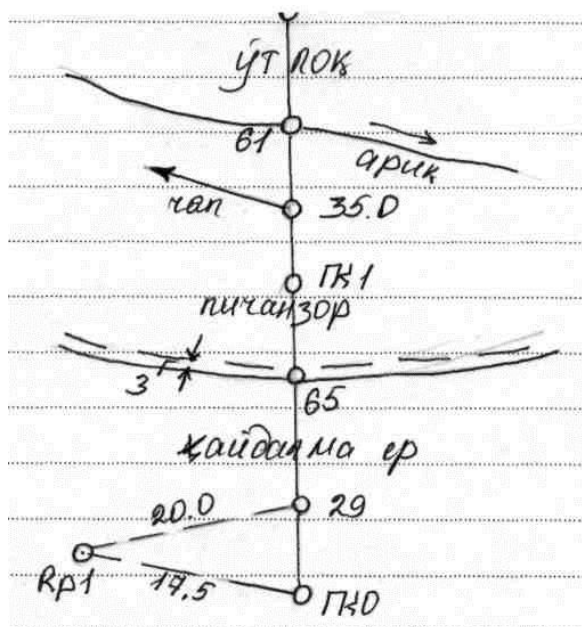 ўтлоқ
61
ариқ
чап
35.0
ПК1
пичанзор
3
65
ҳайдалма ер
20.0
29
Rp1
17.5
ПК0